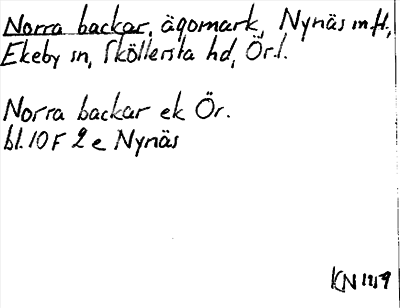 Norra backar, ägomark, Nynäs m fl,
Ekeby sn, Sköllersta hd, Ör.l.
Norra backar ek Ör.
bl. 10 F 2 e Nynäs
KN